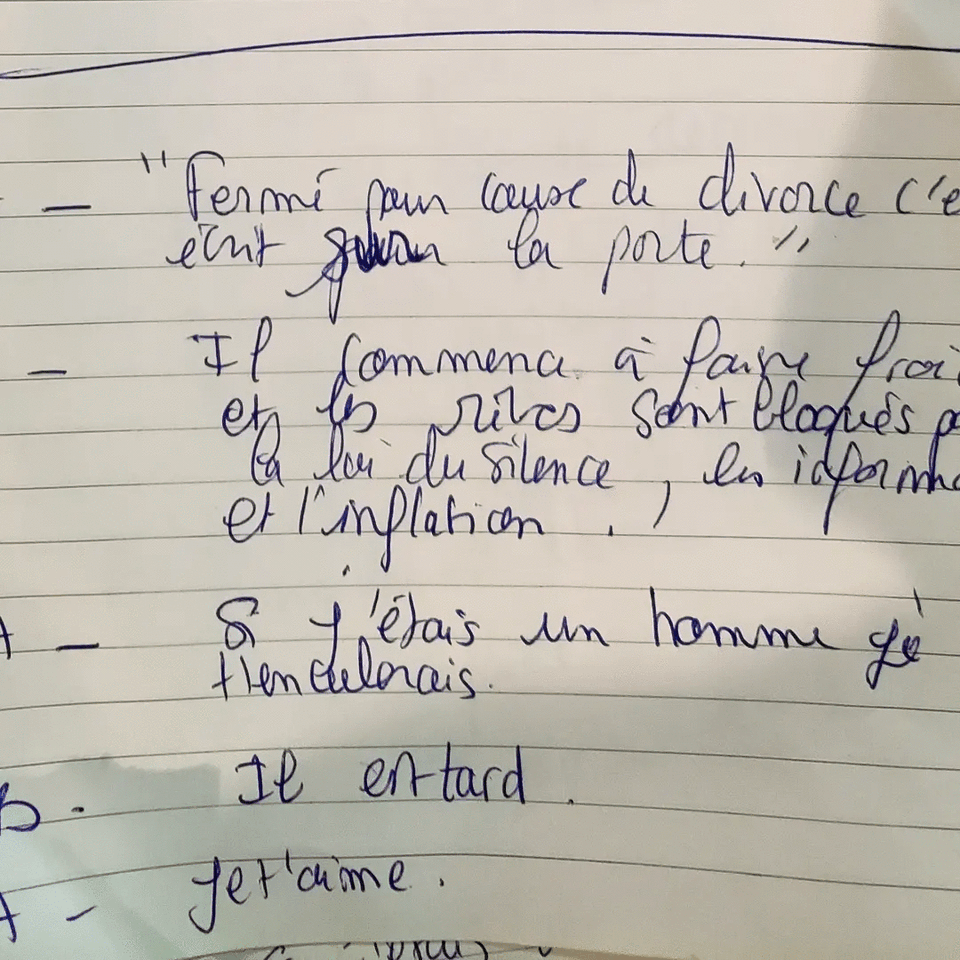 — "Fermé pour cause de divorce c'e
écrit sur la porte."
— Il commence à faire froi
et les rives sont bloqués p
la loi du silence, les informa
et l'inflation.
A — Si j'étais un homme je
t'enculerais.
B. Il est tard.
A — Je t'aime.